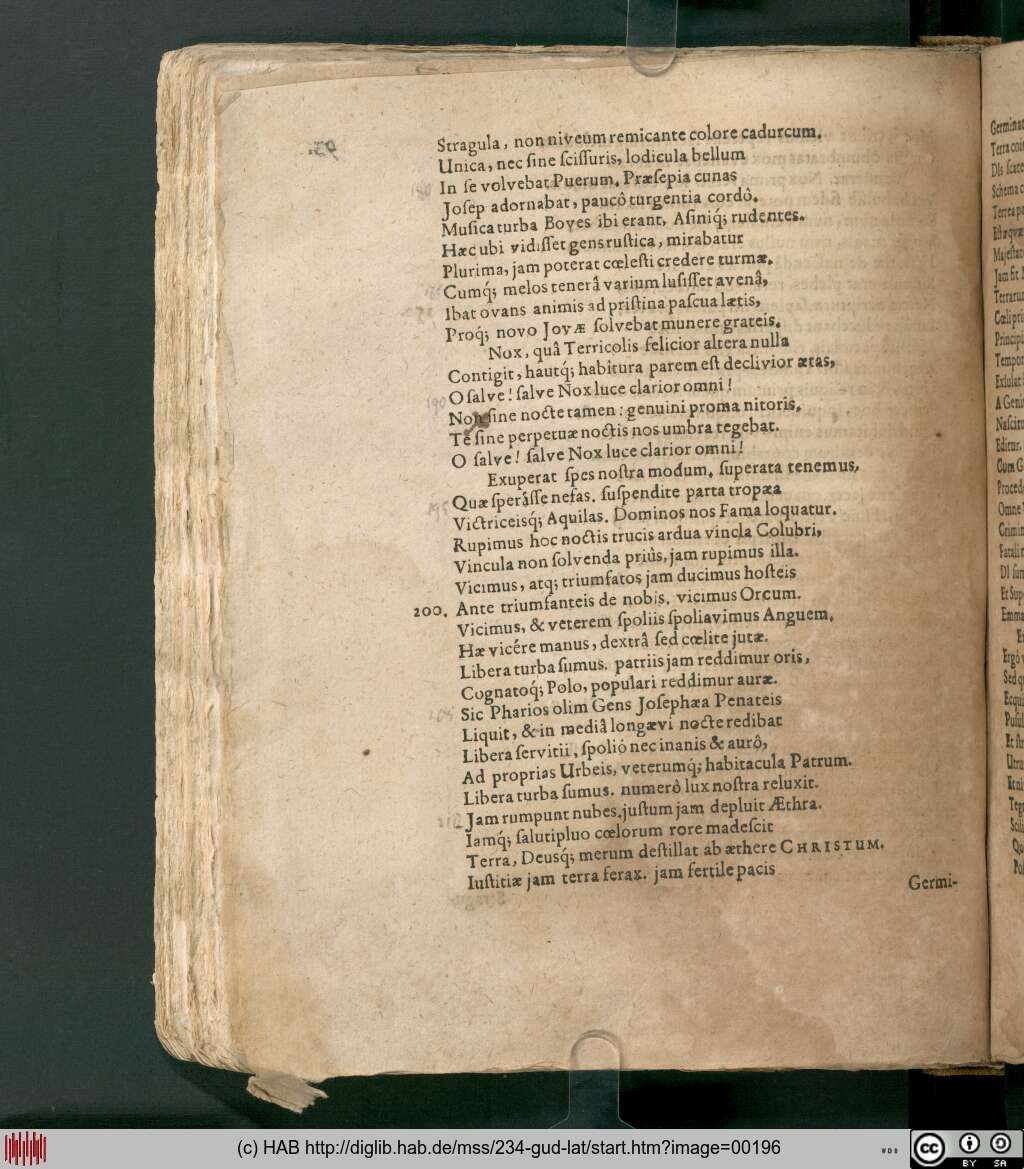 Stragula, non niveum remicante colore cadurcum.
Unica, nec sine scissuris, lodicula bellum
In se volvebat Puerum. Præsepia cunas
Josep adornabat, paucô turgentia cordô.
Musica turba Boves ibi erant, Asiniq́; rudentes.
Hæc ubi vidisset gens rustica, mirabatur
Plurima, jam poterat cœlesti credere turmæ.
Cumq́; melos tenerâ varium lusisset avenâ,
Ibat ovans animis ad pristina pascua lætis,
Proq́; novo Jovæ solvebat munere grateis.
Nox, quâ Terricolis felicior altera nulla
Contigit, hautq́; habitura parem est declivior ætas,
O salve! salve Nox luce clarior omni!
Non sine nocte tamen: genuini proma nitoris,
Tê sine perpetuæ noctis nos umbra tegebat.
O salve! salve Nox luce clarior omni!
Exuperat spes nostra modum. superata tenemus,
Quæ sperâsse nefas. suspendite parta tropæa
Victriceisq́; Aquilas. Dominos nos Fama loquatur.
Rupimus hoc noctis trucis ardua vincla Colubri,
Vincula non solvenda priùs, jam rupimus illa.
Vicimus, atq́; triumfatos jam ducimus hosteis
200. Ante triumfanteis de nobis. vicimus Orcum.
Vicimus, & veterem spoliis spoliavimus Anguem.
Hæ vicére manus, dextrâ sed cœlite jutæ.
Libera turba sumus. patriis jam reddimur oris,
Cognatoq́; Polo, populari reddimur auræ.
Sic Pharios olim Gens Josephæa Penateis
Liquit, & in mediâ longævi nocte redibat
Libera servitii, spoliô nec inanis & aurô,
Ad proprias Urbeis, veterumq́; habitacula Patrum.
Libera turba sumus. numerô lux nostra reluxit.
Jam rumpunt nubes. justum jam depluit Æthra.
Iamq́; salutipluo cœlorum rore madescit
Terra, Deusq́; merum destillat ab æthere CHRISTUM.
Iustitiæ jam terra ferax. jam fertile pacis
Germi-
Germinat
Terra
Schema
Editur.
Omne
Et Sup
Ergò
(c) HAB http://diglib.hab.de/mss/234-gud-lat/start.htm?image=00196
cc
BY SA